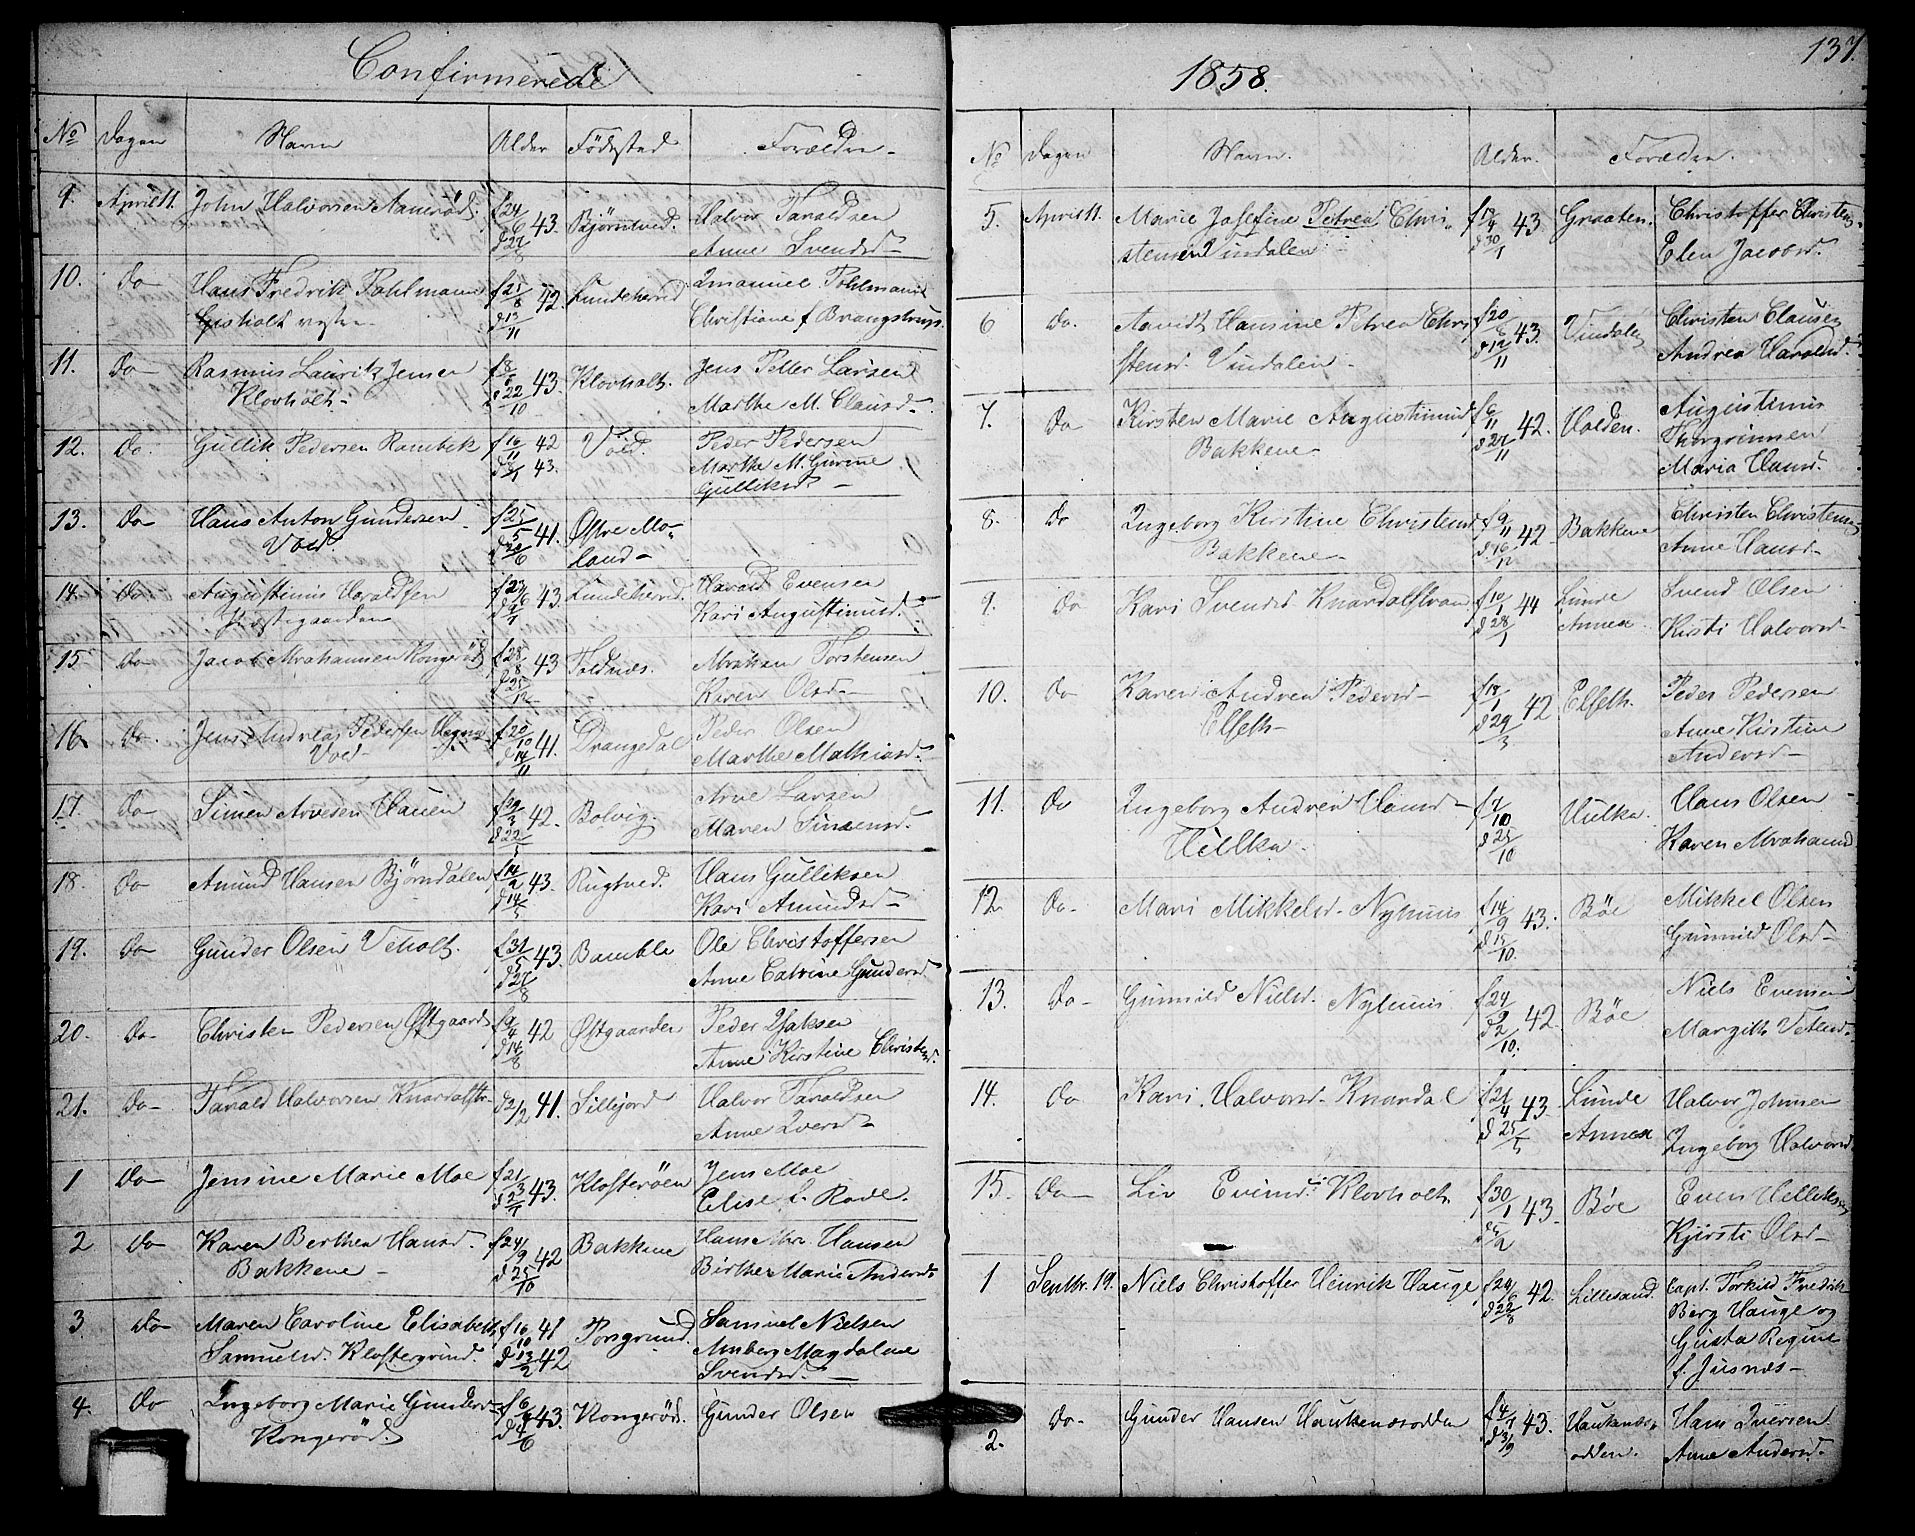 Confirmerede
No Dagen Navn Alder Fødested Forældre
9. April 11. John Halvorsen Aamrød f 24/6 43. Bjørntved. Halvor Taraldsen
d 27/8 Anne Svendsd
10. do Hans Fredrik Pohlmann f 25/8 42. Lundeherred Imanuel Pohlmann
vestre d 13/11 Christiane f. Brangstrup.
11. do Rasmus Laurits Jensen f 8/6 43. Klovholt. Jens Petter Larsen
Klovholt d 22/10 Marthe M. Clausd.
12. do. Gullik Pedersen Rambek f 16/11 42 Vold. Peder Pedersen
d 8/1 43. Marthe M. Gurine
Gulliksd
13. do Hans Anton Gundersen f 25/5 41. Østre Mo-
Vold. d 26/6 land
14. do Augustinus Haraldsen f 23/6 43. Lundeherred. Harald Evensen
Præstegaarden Kari Augustinusd.
15 do Jacob Abrahamsen Kongerød f 28/8 43 Foldnæs. Abraham Torstensen
d 25/12 Karen Olsd
16. do. Jens Andreas Pedersen f 20/10 41. Drangedal Peder Olsen
Vold d 14/11 Marthe Mathiasd.
17 do Simen Arvesen Hauen f 29/3 42. Bolvig. Arve Larsen
d 22/5 Maren Simensd.
18. do Amund Hansen Bjørndalen f 14/2 43. Rugtved. Hans Gulliksen
d 14/5 Kari Amundsd
19. do Gunder Olsen Veholt. f 31/5 43. Bamble Ole Christoffersen
d 27/8 Anne Catrine Gundersd.
20. do Christen Pedersen Østgaard f 9/4 42 Østgaarden Peder Isaksen
d 14/8 Anne Kirstine Christend.
21. do Tarald Halvorsen Knardalstr. d 2/2 41. Sillejord Halvor Taraldsen
Anne Iversd
1 do Jensine Marie Moe f 21/3 43. Klosterøen Jens Moe
Elise f. Rode.
2 do Karen Berthea Hansd. f 24/9 42 Bakkene Hans Abr. Hansen
Bakkene d 25/10 Birthe Marie Andersd
3 do Maren Caroline Elisabeth f 16/10 41 Porsgrund. Samuel Nielsen
Samuelsd. Klostergrund. d 13/2 42 Amberg Magdalene
Svendsd.
4. do Ingeborg Marie Gundersd f 6/ 43. Kongerød. Gunder Olsen
Kongerød d 4/6
1858. 137.
No Dagen Navn. Alder. Forældre.
5. April 11. Marie Josefine Petrea Chri- f 17/9 43 Graaten. Christoffer Christens.
stensen Vindalen d 30/1 Elen Jacobsd.
6 do. Aavidt Hansine Petrea Chri f 20/8 43. Vindalen Christen Clausen
stensd. Vindalen. d 12/11 Andrea Haraldsd.
7. do Kirsten Marie Augustinusd f 6/11 42. Volden. Augustinus
Bakkene d 27/11 Thorgrimsen
Maria Hansd.
8. do Ingeborg Kirstine Christensd f 9/11 42 Bakkene Christen Christensen
Bakkene d 16/12 Anne Hansd
9. do Kari Svendsd. Knardalstrand f 10/1 44 Lunde Svend Olsen
d 28/1 Annex Kirsti Halvorsd
10. do Karen Andrea Pedersd f 18/1 42 Elseth. Peder Pedersen
Elseth d 29/3 Anne Kirstine
Andersd
11. do Ingeborg Andrea Hansd f 7/10 Hulka. Hans Olsen
Hulka. d 25/10 Karen Abrahamsd
12. do. Mari Mikkelsd. Nyhuus f 14/9 43. Bøe Mikkel Olsen
d 15/10. Gunnild Olsd
13. do Gunnild Nielsd. Nyhuus f 24/9 42. Bøe Niels Evensen
d 2/10. Margith
14. do Kari Halvorsd. Knardal f 21/4 43. Lunde Halvor Johnsen
d 25/5 Annex Ingeborg Halvorsd
15. do Liv Evensd. Klovholt f 30/1 43. Bøe Even Helliksen
d 5/2 Kjersti Olsd
1 Septbr. 19. Niels Christoffer Henrik Hauge f 24/6 42. Lillesand. Capt. Torkild Fredrik
d 22/8 Berg Hauge og
Gusta Regine
f. Jusnæs
2. do. Gunder Hansen Haukenæsodden f 4/7 43. Haukenæs- Hans Iversen
d 3/9 odden. Anne Andersd.